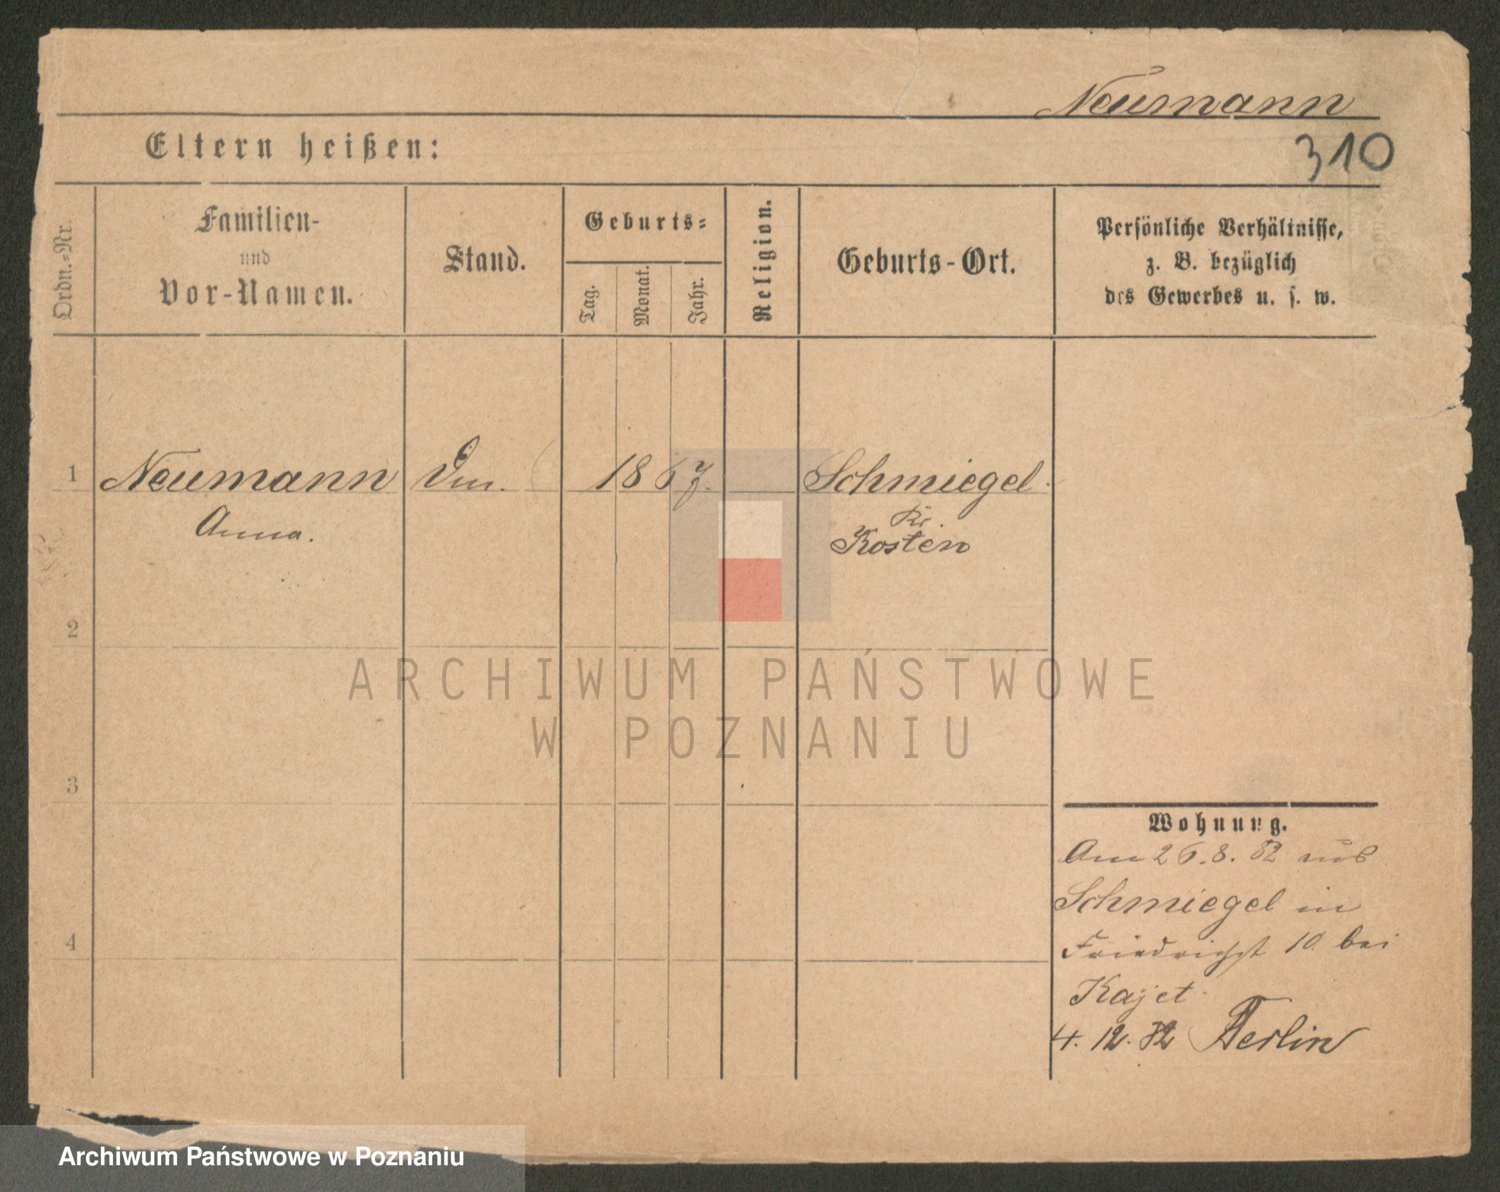 Neumann
310
Eltern heißen:
Ordn.-Nr.
Familien-
und
Vor-Namen.
Stand.
Geburts-
Tag.
Monat.
Jahr.
Religion.
Geburts-Ort.
Persönliche Verhältnisse,
z. B. bezüglich
des Gewerbes u. s. w.
1 Neumann 1867. Schmiegel
Anna. Kr.
Kosten
2
3
4
ARCHIWUM PAŃSTWOWE
W POZNANIU
Wohnung.
Am 26.8.82 aus
Schmiegel in
Friedrichst 10 bei
Kajet
4.12.82 Berlin
Archiwum Państwowe w Poznaniu